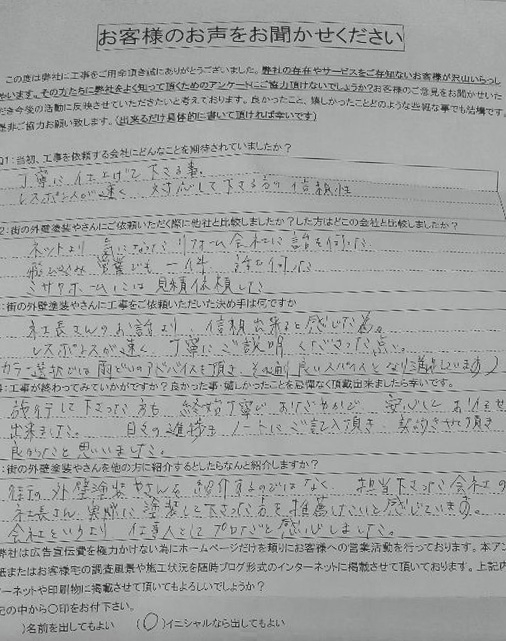 お客様のお声をお聞かせください
この度は弊社に工事をご用命頂き誠にありがとうございました。弊社の存在やサービスをご存知ないお客様が沢山いらっし
ゃいます。その方たちに弊社をよく知って頂くためのアンケートにご協力頂けないでしょうか?お客様のご意見をお聞かせいた
だき今後の活動に反映させていただきたいと考えております。良かったこと、嬉しかったことどのような些細な事でも結構です。
是非ご協力お願い致します。(出来るだけ具体的に書いて頂ければ幸いです)
Q1:当初、工事を依頼する会社にどんなことを期待されていましたか?
丁寧に仕上げて下さる事。
レスポンスが速く 対応して下さる方の信頼性
2:街の外壁塗装やさんにご依頼いただく際に他社と比較しましたか?した方はどこの会社と比較しましたか?
ネットより 気になった リフォーム会社に 話を伺った
飛び込み 営業でも 一件 話を伺った
ミサワホームには 見積依頼した
:街の外壁塗装やさんに工事をご依頼いただいた決め手は何ですか
社長さんのお話より、信頼出来ると感じた為。
レスポンスが速く 丁寧に ご説明 くださった点。
カラー選択では 雨どいのアドバイスを頂き、それが 良いスパイスとなり満足しています
:工事が終わってみていかがですか?良かった事・嬉しかったことを忌憚なく頂戴出来ましたら幸いです。
施行して下さった方も 終始丁寧で おだやかで 安心して お任せ
出来ました。 日々の進捗も ノートにご記入頂き、契約させて頂き
良かったと思いました。
:街の外壁塗装やさんを他の方に紹介するとしたらなんと紹介しますか?
街の外壁塗装やさんを 紹介するのではなく、担当下さった 会社の
社長さん、実際に 塗装して下さった方を 推薦したいと感じています。
会社というより 仕事人として プロだなと 感心しました。
弊社は広告宣伝費を極力かけない為にホームページだけを頼りにお客様への営業活動を行っております。本アン
紙またはお客様宅の調査風景や施工状況を随時ブログ形式のインターネットに掲載させて頂いております。上記内
ーネットや印刷物に掲載させて頂いてもよろしいでしょうか?
記の中から〇印をお付下さい。
)名前を出してもよい (〇)イニシャルなら出してもよい